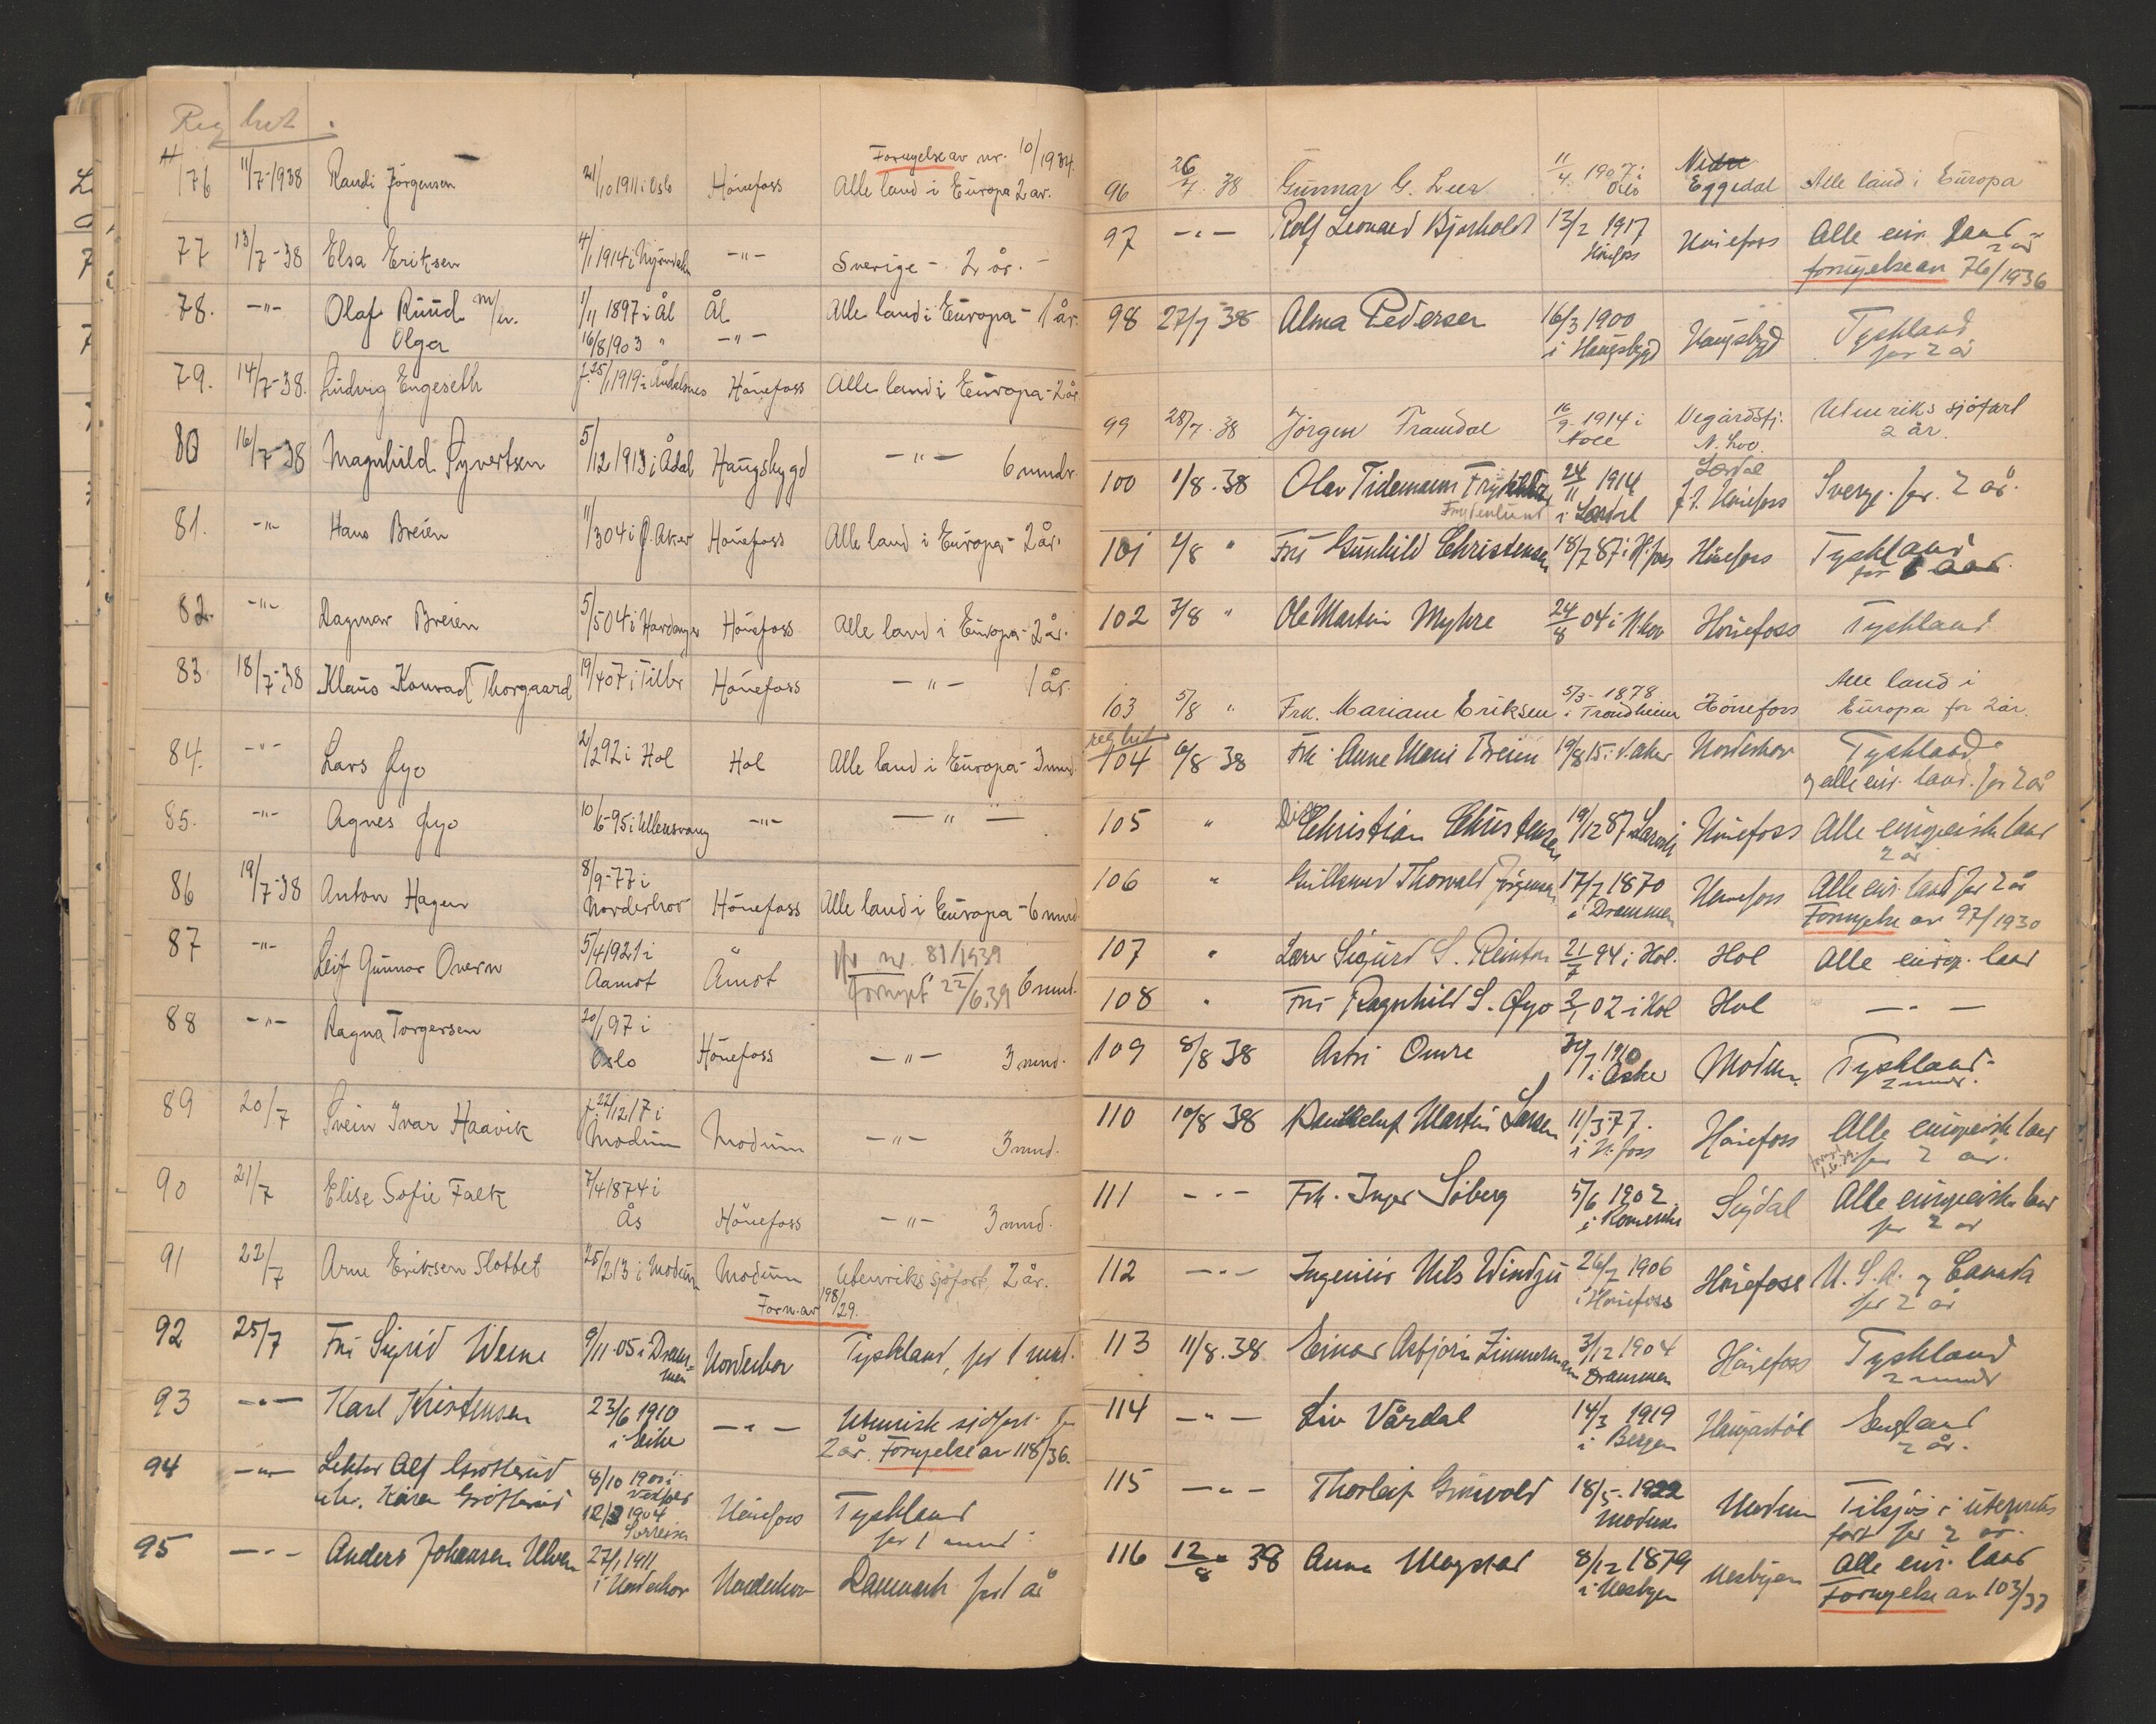 Reg
76 11/7-1938 Randi Jörgensen 21/10 1911 i Oslo Hönefoss Fornyelse av nr. 10/1934.
Alle land i Europa 2 år.
77 13/7-38 Elsa Eriksen 4/1 1914 i -"- Sverige - 2 år. -
78. -"- Olaf Ruud m/ 1/11 1897 i Ål Ål Alle land i Europa - 1 år.
Olga 16/8 1903 " -"-
79. 14/7-38. Ludvig Engeseth f. 25/1 1919 i Åndalsnes Hönefoss Alle land i Europa - 2 år
80 16/7-38 Magnhild Syvertsen 5/12 1913 i Ådal Haugsbygd -"- 6 mndr.
81. -"- Hans Breien 11/3 04 i Ø. Aker Hönefoss Alle land i Europa - 2 år.
82. -"- Dagmar Breien 5/5 04 i Hardanger Hönefoss Alle land i Europa - 2 år.
83. 18/7-38 Klaus Konrad Thorgaard 19/4 07 i Hönefoss -"- 1 år.
84. -"- Lars 2/2 92 i Hol Hol Alle land i Europa - 3 mnd.
85. -"- Agnes 10/6-95 i Ullensvang -"- -"-
86 19/7-38 Anton Hagen 8/9-77 i
Norderhov Hönefoss Alle land i Europa - 6 mnd.
87 -"- Leif Gunnar Overn 5/4 1921 i
Aamot Åmot nr. 81/1939
fornyet 22/6.39 6 mnd.
88 -"- Ragna Torgersen 20/1 97 i
Oslo Hönefoss -"- 3 mnd.
89 20/7 Svein Ivar Haavik f. 22/12 17 i
Modum Modum -"- 3 mnd.
90 21/7 Elise Sofie Falk 7/4 1874 i
Ås Hönefoss -"- 3 mnd.
91 22/7 Arne Eriksen Slottet 25/2 13 i Modum Modum Utenriks sjöfart, 2 år.
Forn. av 198/29.
92 25/7 Sigrid 9/11-05 i Drammen Norderhov Tyskland, for 1 mnd.
93 -"- Karl Kristensen 23/6 1910
i Eiker -"- Utenriks sjöfart for
2 år. Fornyelse av 118/36.
94 -"- Lektor Alf Gröttrud 8/10 1900 i
Kåra Gröttrud 1904 Hönefoss Tyskland
for 1 mnd.
95 -"- Anders Johansen Ulven 27/1 1911
i Norderhov Norderhov Danmark for 1 år
96 26/7 38 Gunnar G. 11/4 1907 i
Oslo Nedre
Eggedal Alle land i Europa
97 -"- Rolf Leonard Bjørholdt 13/2 1917
Hönefoss Hönefoss Alle eur. land
2 år
fornyelse av 76/1936
98 27/7 38 Alma Pedersen 16/3 1900
i Haugsbygd Haugsbygd Tyskland
for 2 år
99 28/7-38 Jörgen Framdal 16/9 1914 i Vegårdsfj. Utenriks sjöfart
2 år.
100 1/8.38 Olav Tidemann 24/11 1914
Frydenlund i Lærdal Lærdal
f.t. Hönefoss Sverge for 2 år.
101 2/8 " Gunhild Christensen 18/7 87 i H.foss Hönefoss Tyskland
102 3/8 " Ole Martin Myhre 24/8 04 i N.hov Hönefoss Tyskland
103 5/8 " Frk. Mariane Eriksen 5/3-1878
i Trondheim Hönefoss Alle land i
Europa for 2 år.
104 6/8 38 Frk. Anne Marie Breien 19/8 15 i V. Aker Norderhov Tyskland
og alle eur. land for 2 år
105 " Christian Christensen 19/12 87 Hönefoss Alle europeiske land
2 år
106 " Thorvald Jörgensen 17/7 1870
i Drammen Hönefoss Alle eur. land for 2 år
Fornyelse av 97/1930
107 " Sigurd S. Reinton 21/7 94 i Hol. Hol Alle europ. land
108 " Ragnhild S. 02 i Hol Hol -"-
109 8/8 38 Astri Omre 1910
i Asker Modum. Tyskland-
2 mndr.
110 10/8 38 Martin Larsen 11/3 77.
i H.foss Hönefoss Alle europeiske land
for 2 år.
111 -"- Frk. Inger Söberg 5/6 1902 Sigdal Alle europeiske land
for 2 år
112 -"- Ingeniör Nils 26/7 1906
i Hönefoss Hönefoss U.S.A. og Canada
for 2 år
113 11/8.38 Einar Asbjörn Zimmermann 3/12 1904
Drammen Hönefoss Tyskland
2 mndr
114 -"- Liv Vårdal 14/3 1919
i Bergen Haugastöl England
2 år.
115 -"- Thorleif 18/5-1922
Modum Modum Tilsjös i utenriks
fart for 2 år.
116 12/8 38 Anna 8/12 1879
i Nesbyen Nesbyen Alle eur. land
Fornyelse av 103/37